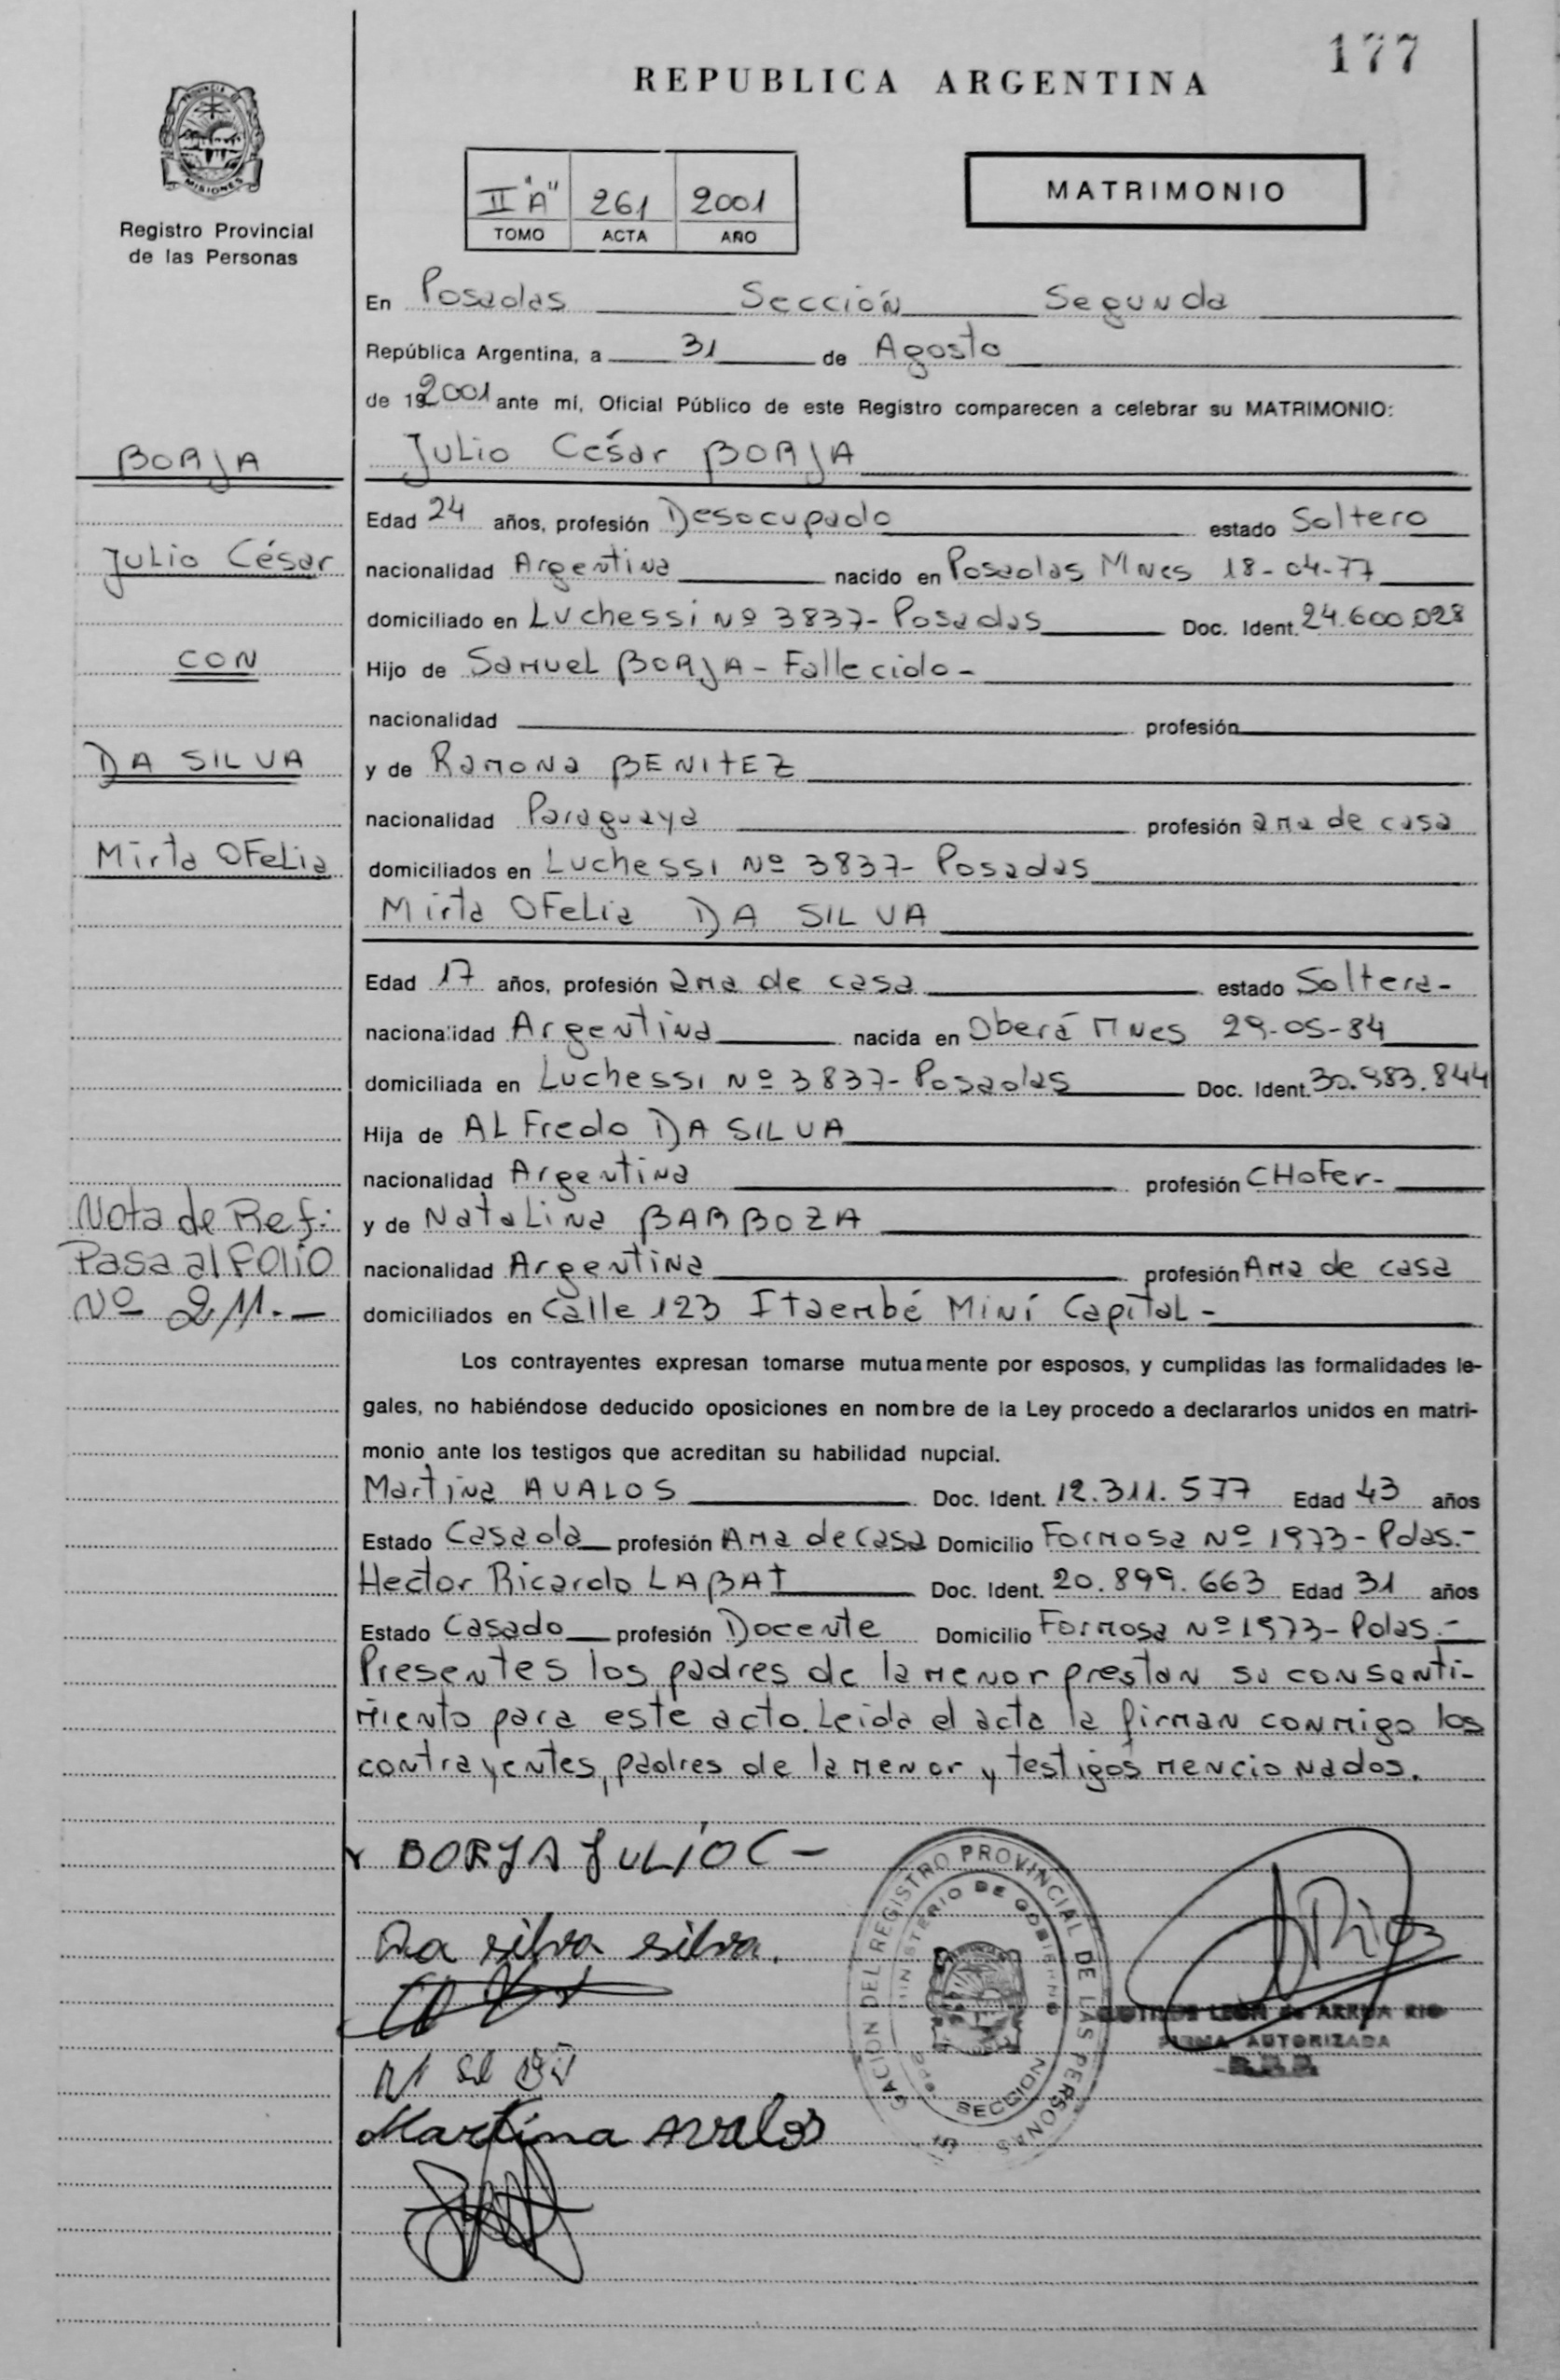 177
REPUBLICA ARGENTINA
PROVINCIA DE
MISIONES
Registro Provincial
de las Personas
II "A" 261 2001
TOMO ACTA AÑO
MATRIMONIO
En Posadas Sección Segunda
República Argentina, a 31 de Agosto
de 192001 ante mí, Oficial Público de este Registro comparecen a celebrar su MATRIMONIO:
BORJA
Julio César
CON
DA SILVA
Mirta OFelia
Nota de Ref:
Pasa al Folio
Nº 211.-
Julio César BORJA
Edad 24 años, profesión Desocupado estado Soltero
nacionalidad Argentina nacido en Posadas Mnes 18-04-77
domiciliado en Luchessi Nº 3837- Posadas Doc. Ident. 24.600.028
Hijo de Samuel BORJA - Fallecido -
nacionalidad profesión
y de Ramona BENITEZ
nacionalidad Paraguaya profesión ama de casa
domiciliados en Luchessi Nº 3837- Posadas
Mirta OFelia DA SILVA
Edad 17 años, profesión ama de casa estado Soltera-
nacionalidad Argentina nacida en Oberá Mnes 29-05-84
domiciliada en Luchessi Nº 3837- Posadas Doc. Ident. 30.983.844
Hija de ALFredo DA SILVA
nacionalidad Argentina profesión CHoFer-
y de NataLina BARBOZA
nacionalidad Argentina profesión Ama de casa
domiciliados en Calle 123 Itaembé Miní Capital -
Los contrayentes expresan tomarse mutuamente por esposos, y cumplidas las formalidades le-
gales, no habiéndose deducido oposiciones en nombre de la Ley procedo a declararlos unidos en matri-
monio ante los testigos que acreditan su habilidad nupcial.
Martina AVALOS Doc. Ident. 12.311.577 Edad 43 años
Estado Casada profesión Ama de casa Domicilio Formosa Nº 1973- Pdas.-
Hector Ricardo LABAT Doc. Ident. 20.899.663 Edad 31 años
Estado Casado profesión Docente Domicilio Formosa Nº 1973- Pdas.-
Presentes los padres de la menor prestan su consenti-
miento para este acto. Leida el acta la firman conmigo los
contrayentes, padres de la menor y testigos mencionados.
BORJA JULIO C -
Da silva silva.
Martina Avalos
REGISTRO PROVINCIAL DE LAS PERSONAS
MINISTERIO DE GOBIERNO
SECCION
LEON de ARRUA
FIRMA AUTORIZADA